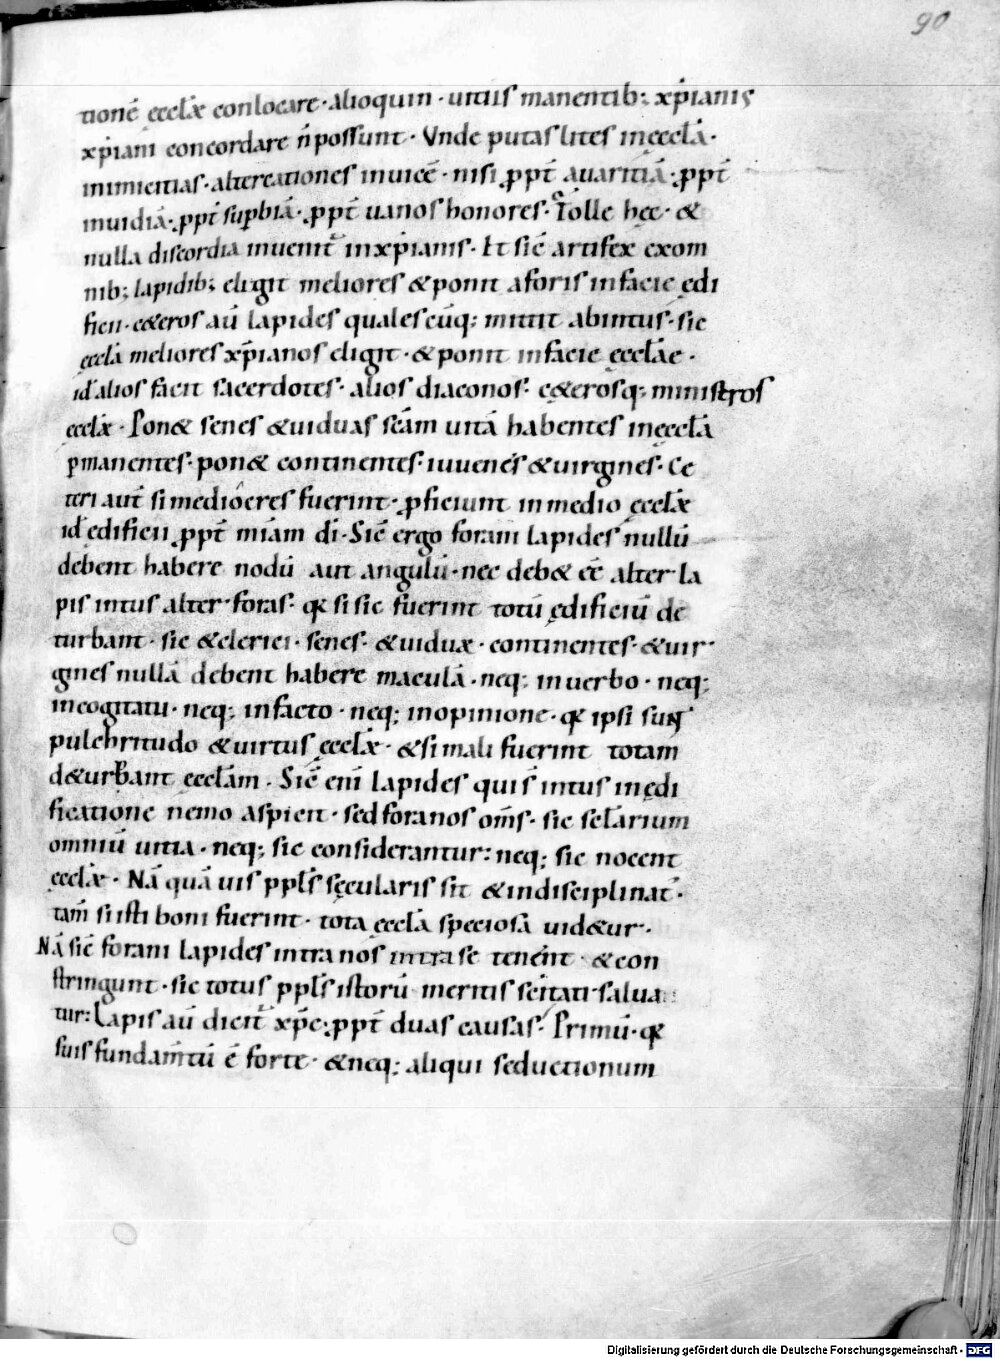 90
tionē ęccłæ conlocare · alioquin · uitiis manentib; xp̄ianis
xp̄iani concordare n̄ possunt · Vnde putas lites in ęccłā ·
inimicitias · altercationes inuicē · nisi ꝓpt̄ auaritiā · ꝓpt̄
inuidiā · ꝓpt̄ suꝑbiā · ꝓpt̄ uanos honores · Tolle hęc · &
nulla discordia inuenit̄ in xp̄ianis · Et sic̄ artifex ex om
nib; lapidib; eligit meliores & ponit a foris in facie ędi
ficii · c&eros aū lapides qualescūq; mittit ab intus · sic
ęccłā meliores xp̄ianos eligit · & ponit in facie ęccłae ·
id ÷ alios facit sacerdotes · alios diaconos · c&erosq; ministros
ęccłæ · Pon& senes & uiduas scām uitā habentes in ęccłā
ꝑmanentes · pon& continentes · iuuenes & uirgines · Ce
teri aut̄ si mediocres fuerint · ꝓficiunt in medio ęccłæ
id ÷ edificii ꝓpt̄ miam dī · Sic̄ ergo forani lapides nullū
debent habere nodū aut angulū · nec deb& eē alter la
pis intus alter foras · qꝛ si sic fuerint totū ędificiū de
turbant · sic & clerici · senes · & uiduæ · continentes · & uir
gines nullā debent habere maculā · neq; in uerbo · neq;
in cogitatu · neq; in facto · neq; in opinione · qꝛ ipsi sunt
pulchritudo & uirtus ęccłæ · & si mali fuerint totam
d&urbant ęccłam · Sic̄ enī lapides qui s̄ intus in ędi
ficatione nemo aspicit · sed foranos om̄s · sic scłarium
omniū uitia · neq; sic considerantur: neq; sic nocent
ęccłæ · Nā quā uis ppłs sęcularis sit & indisciplinat ·
tam̄ si isti boni fuerint · tota ęccłā speciosa uid&ur ·
Nā sic̄ forani lapides intra nos intra se tenent · & con
stringunt · sic totus ppłs istorū meritis scitati salua
tur: Lapis aū dicit̄ xp̄c ꝓpt̄ duas causas · Primū · qꝛ
suis fundam̄tū ē forte · & neq; aliqui seductionum
Digitalisierung gefördert durch die Deutsche Forschungsgemeinschaft - DFG